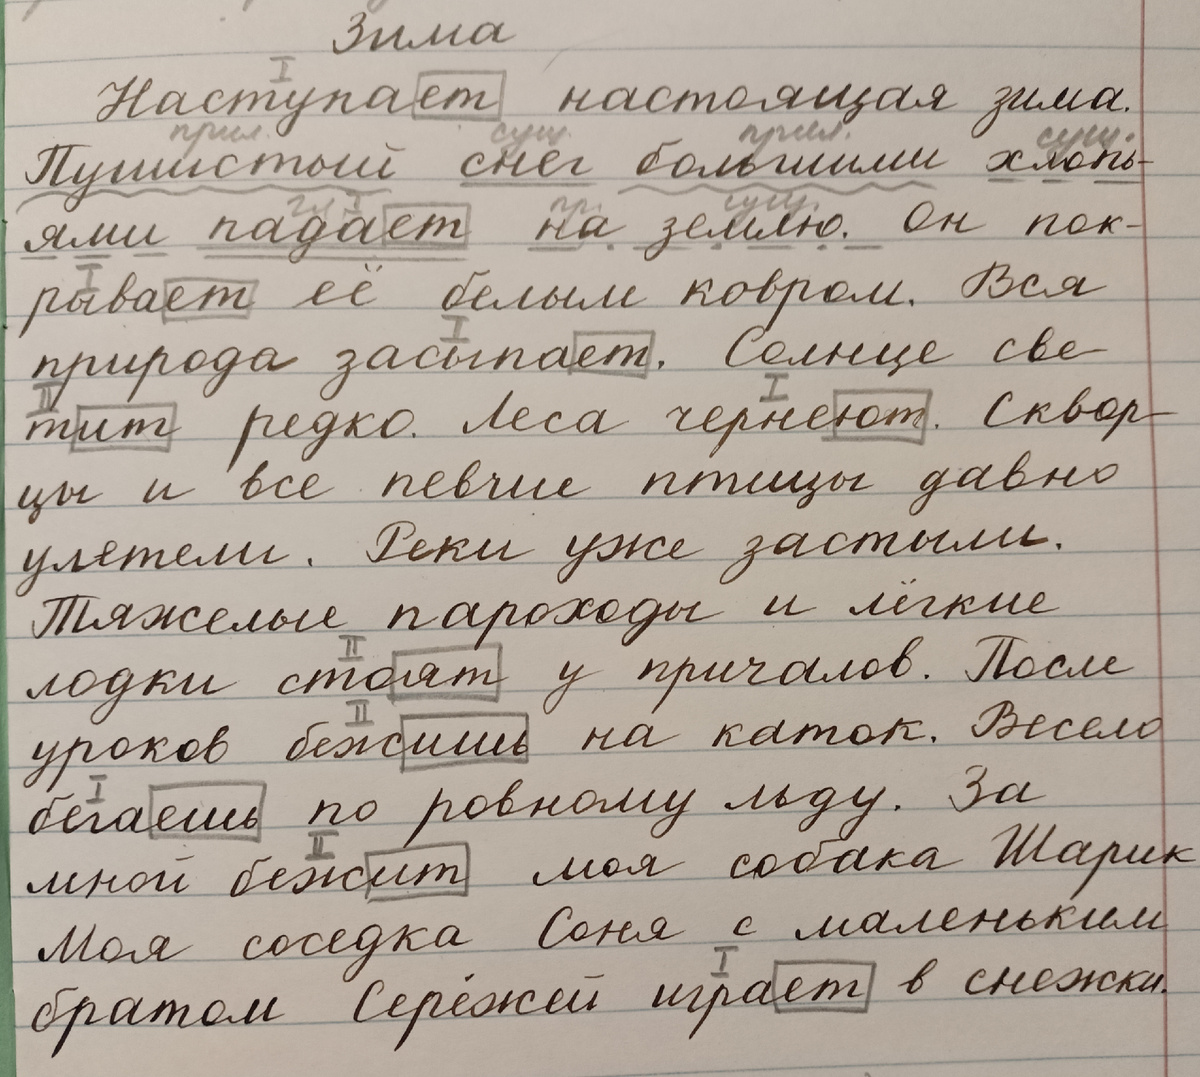 Зима
I
Наступает настоящая зима.
прил. сущ. прил. сущ.
Пушистый снег большими хлопь-
гл. I пр. сущ.
ями падает на землю. Он пок-
I
рывает её белым ковром. Вся
I
природа засыпает. Солнце све-
II I
тит редко. Леса чернеют. Сквор-
цы и все певчие птицы давно
улетели. Реки уже застыли.
Тяжелые пароходы и лёгкие
II
лодки стоят у причалов. После
II
уроков бежишь на каток. Весело
I
бегаешь по ровному льду. За
II
мной бежит моя собака Шарик
Моя соседка Соня с маленьким
I
братом Серёжей играет в снежки.